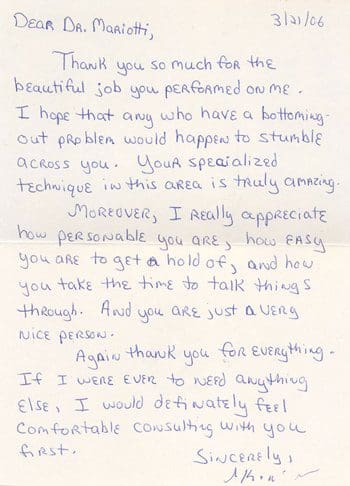 3/21/06
Dear Dr. Mariotti,
Thank you so much for the
beautiful job you performed on me.
I hope that any who have a bottoming-
out problem would happen to stumble
across you. Your specialized
technique in this area is truly amazing.
Moreover, I really appreciate
how personable you are, how easy
you are to get a hold of, and how
you take the time to talk things
through. And you are just a very
nice person.
Again thank you for everything.
If I were ever to need anything
else, I would definately feel
comfortable consulting with you
first.
Sincerely,